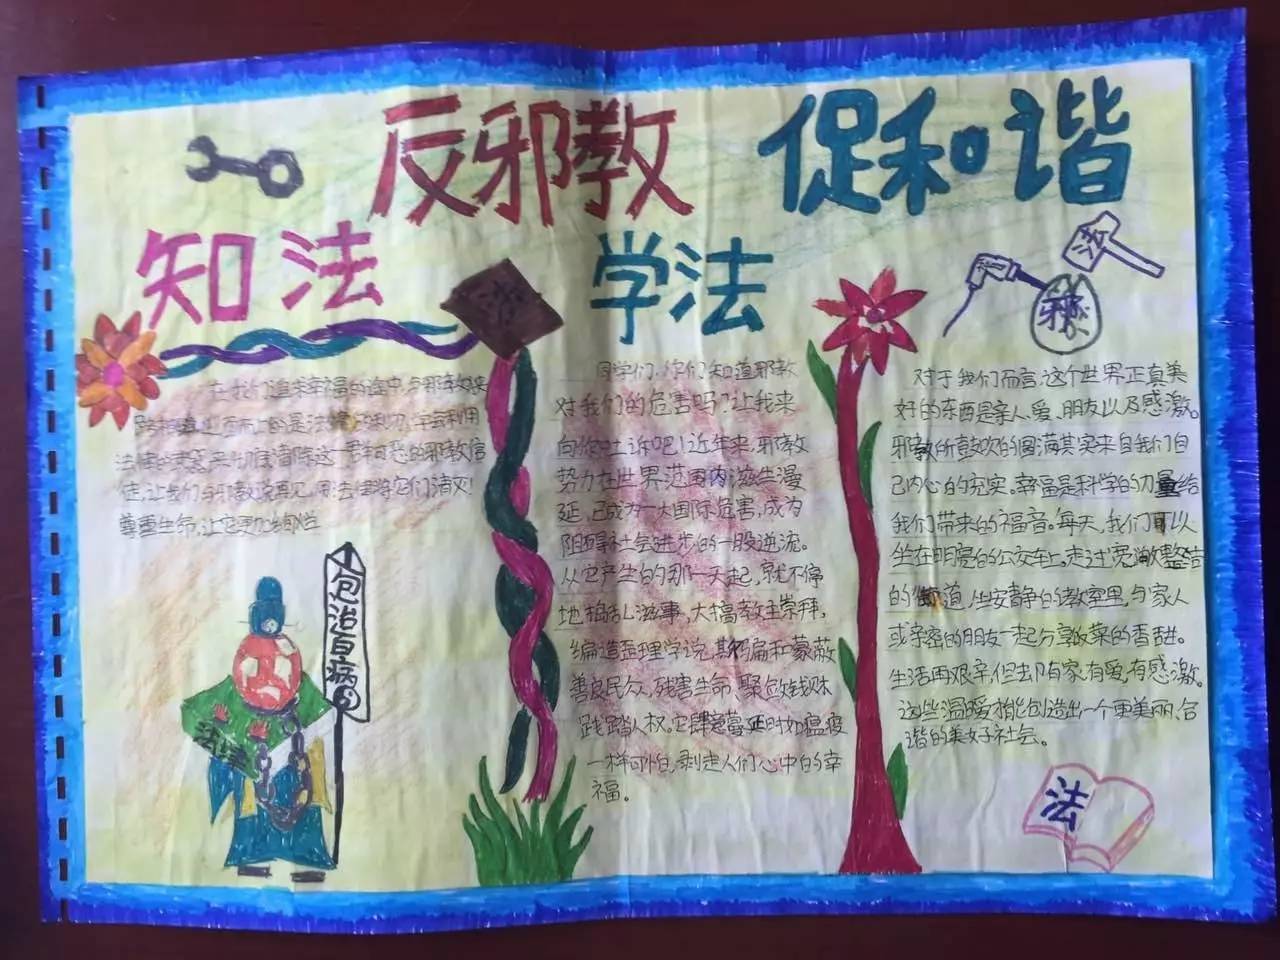 反邪教 促和谐
知法 学法
法
邪教
在我们追求幸福的途中,与邪教
尊重生命,让它更加绚烂
包治百病
法律
同学们,你们知道邪教
对我们的危害吗?让我来
向你吐诉吧!近年来,邪教
势力在世界范围内滋生漫
延,已成为一大国际危害,成为
阻碍社会进步的一股逆流。
从它产生的那一天起,就不停
地捣乱滋事,大搞教主崇拜,
编造歪理学说,欺骗和蒙蔽
善良民众,残害生命,聚敛钱财
践踏人权。它肆意蔓延时如瘟疫
一样可怕,剥走人们心中的幸
福。
对于我们而言,这个世界正真美
好的东西是亲人、爱、朋友以及感激。
邪教所鼓吹的圆满其实来自我们自
己内心的充实。幸福是科学的力量给
我们带来的福音。每天,我们可以
坐在明亮的公交车上,走过宽敞整洁
的街道,坐安静的教室里,与家人
或亲密的朋友一起分享饭菜的香甜。
生活再艰辛,但却有家,有爱,有感激。
这些温暖才能创造出一个更美丽、和
谐的美好社会。
法